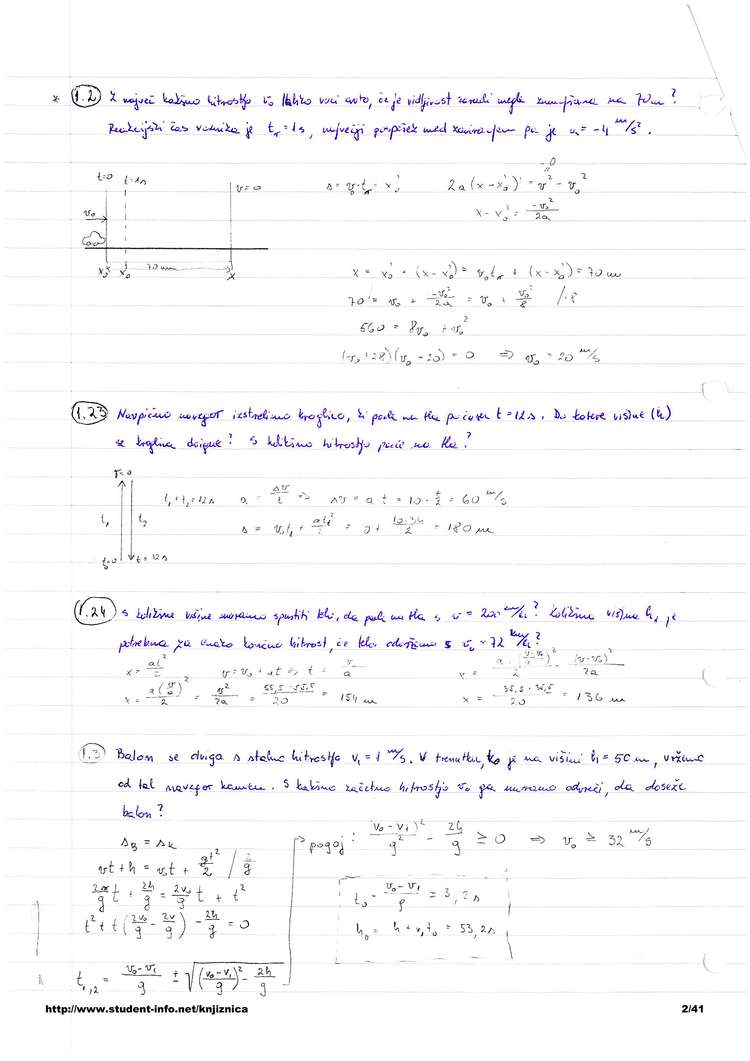 * 1.2 Z največ kakšno hitrostjo v₀ lahko vozi avto, če je vidljivost zaradi megle zmanjšana na 70m?
Reakcijski čas voznika je tᵣ = 1s, največji pospešek med zaviranjem pa je a = -4 m/s².
t=0 t=1s v=0
v₀
x₀ x₀' 70m x
s = v₀·tᵣ = x₀' 2a(x-x₀') = v² - v₀²
=0
x-x₀' = -v₀²/2a
x = x₀' + (x-x₀') = v₀tᵣ + (x-x₀') = 70m
70 = v₀ + -v₀²/2a = v₀ + v₀²/8 /·8
560 = 8v₀ + v₀²
(v₀+28)(v₀-20) = 0 ⇒ v₀ = 20 m/s
1.23 Navpično navzgor izstrelimo kroglico, ki pade na tla po času t = 12s. Do katere višine (h)
se kroglica dvigne? S kolikšno hitrostjo pade na tla?
v=0
t₁ t₂ t₁+t₂=12s
t₀=0 t=12s
a = Δv/t ⇒ Δv = at = 10·t/2 = 60 m/s
s = v₀t₁ + at₁²/2 = 0+ 10·36/2 = 180m
1.24 S kolikšne višine moramo spustiti telo, da pade na tla s v = 200 km/h? Kolikšna višina h₁ je
potrebna za enako končno hitrost, če telo odvržemo s v₀ = 72 km/h?
x = at²/2 v = v₀ + at ⇒ t = v/a x = a·((v-v₀)/a)²/2 = (v-v₀)²/2a
x = a(v/a)²/2 = v²/2a = 55,5·55,5/20 = 154m x = 35,5·35,5/20 = 136m
1.3 Balon se dviga s stalno hitrostjo v₁ = 1 m/s. V trenutku, ko je na višini h = 50m, vržemo
od tal navzgor kamen. S kakšno začetno hitrostjo v₀ ga moramo odvreči, da doseže
balon?
s_B = s_K
vt+h = v₀t + gt²/2 / 2/g
2v/g t + 2h/g = 2v₀/g t + t²
t² + t(2v₀/g - 2v/g) - 2h/g = 0
t₁,₂ = (v₀-v₁)/g ± √((v₀-v₁)²/g - 2h/g)
pogoj: (v₀-v₁)²/g² - 2h/g ≥ 0 ⇒ v₀ ≥ 32 m/s
t₀ = (v₀-v₁)/g = 3,2s
h₀ = h + v₁t₀ = 53,2s
http://www.student-info.net/knjiznica 2/41